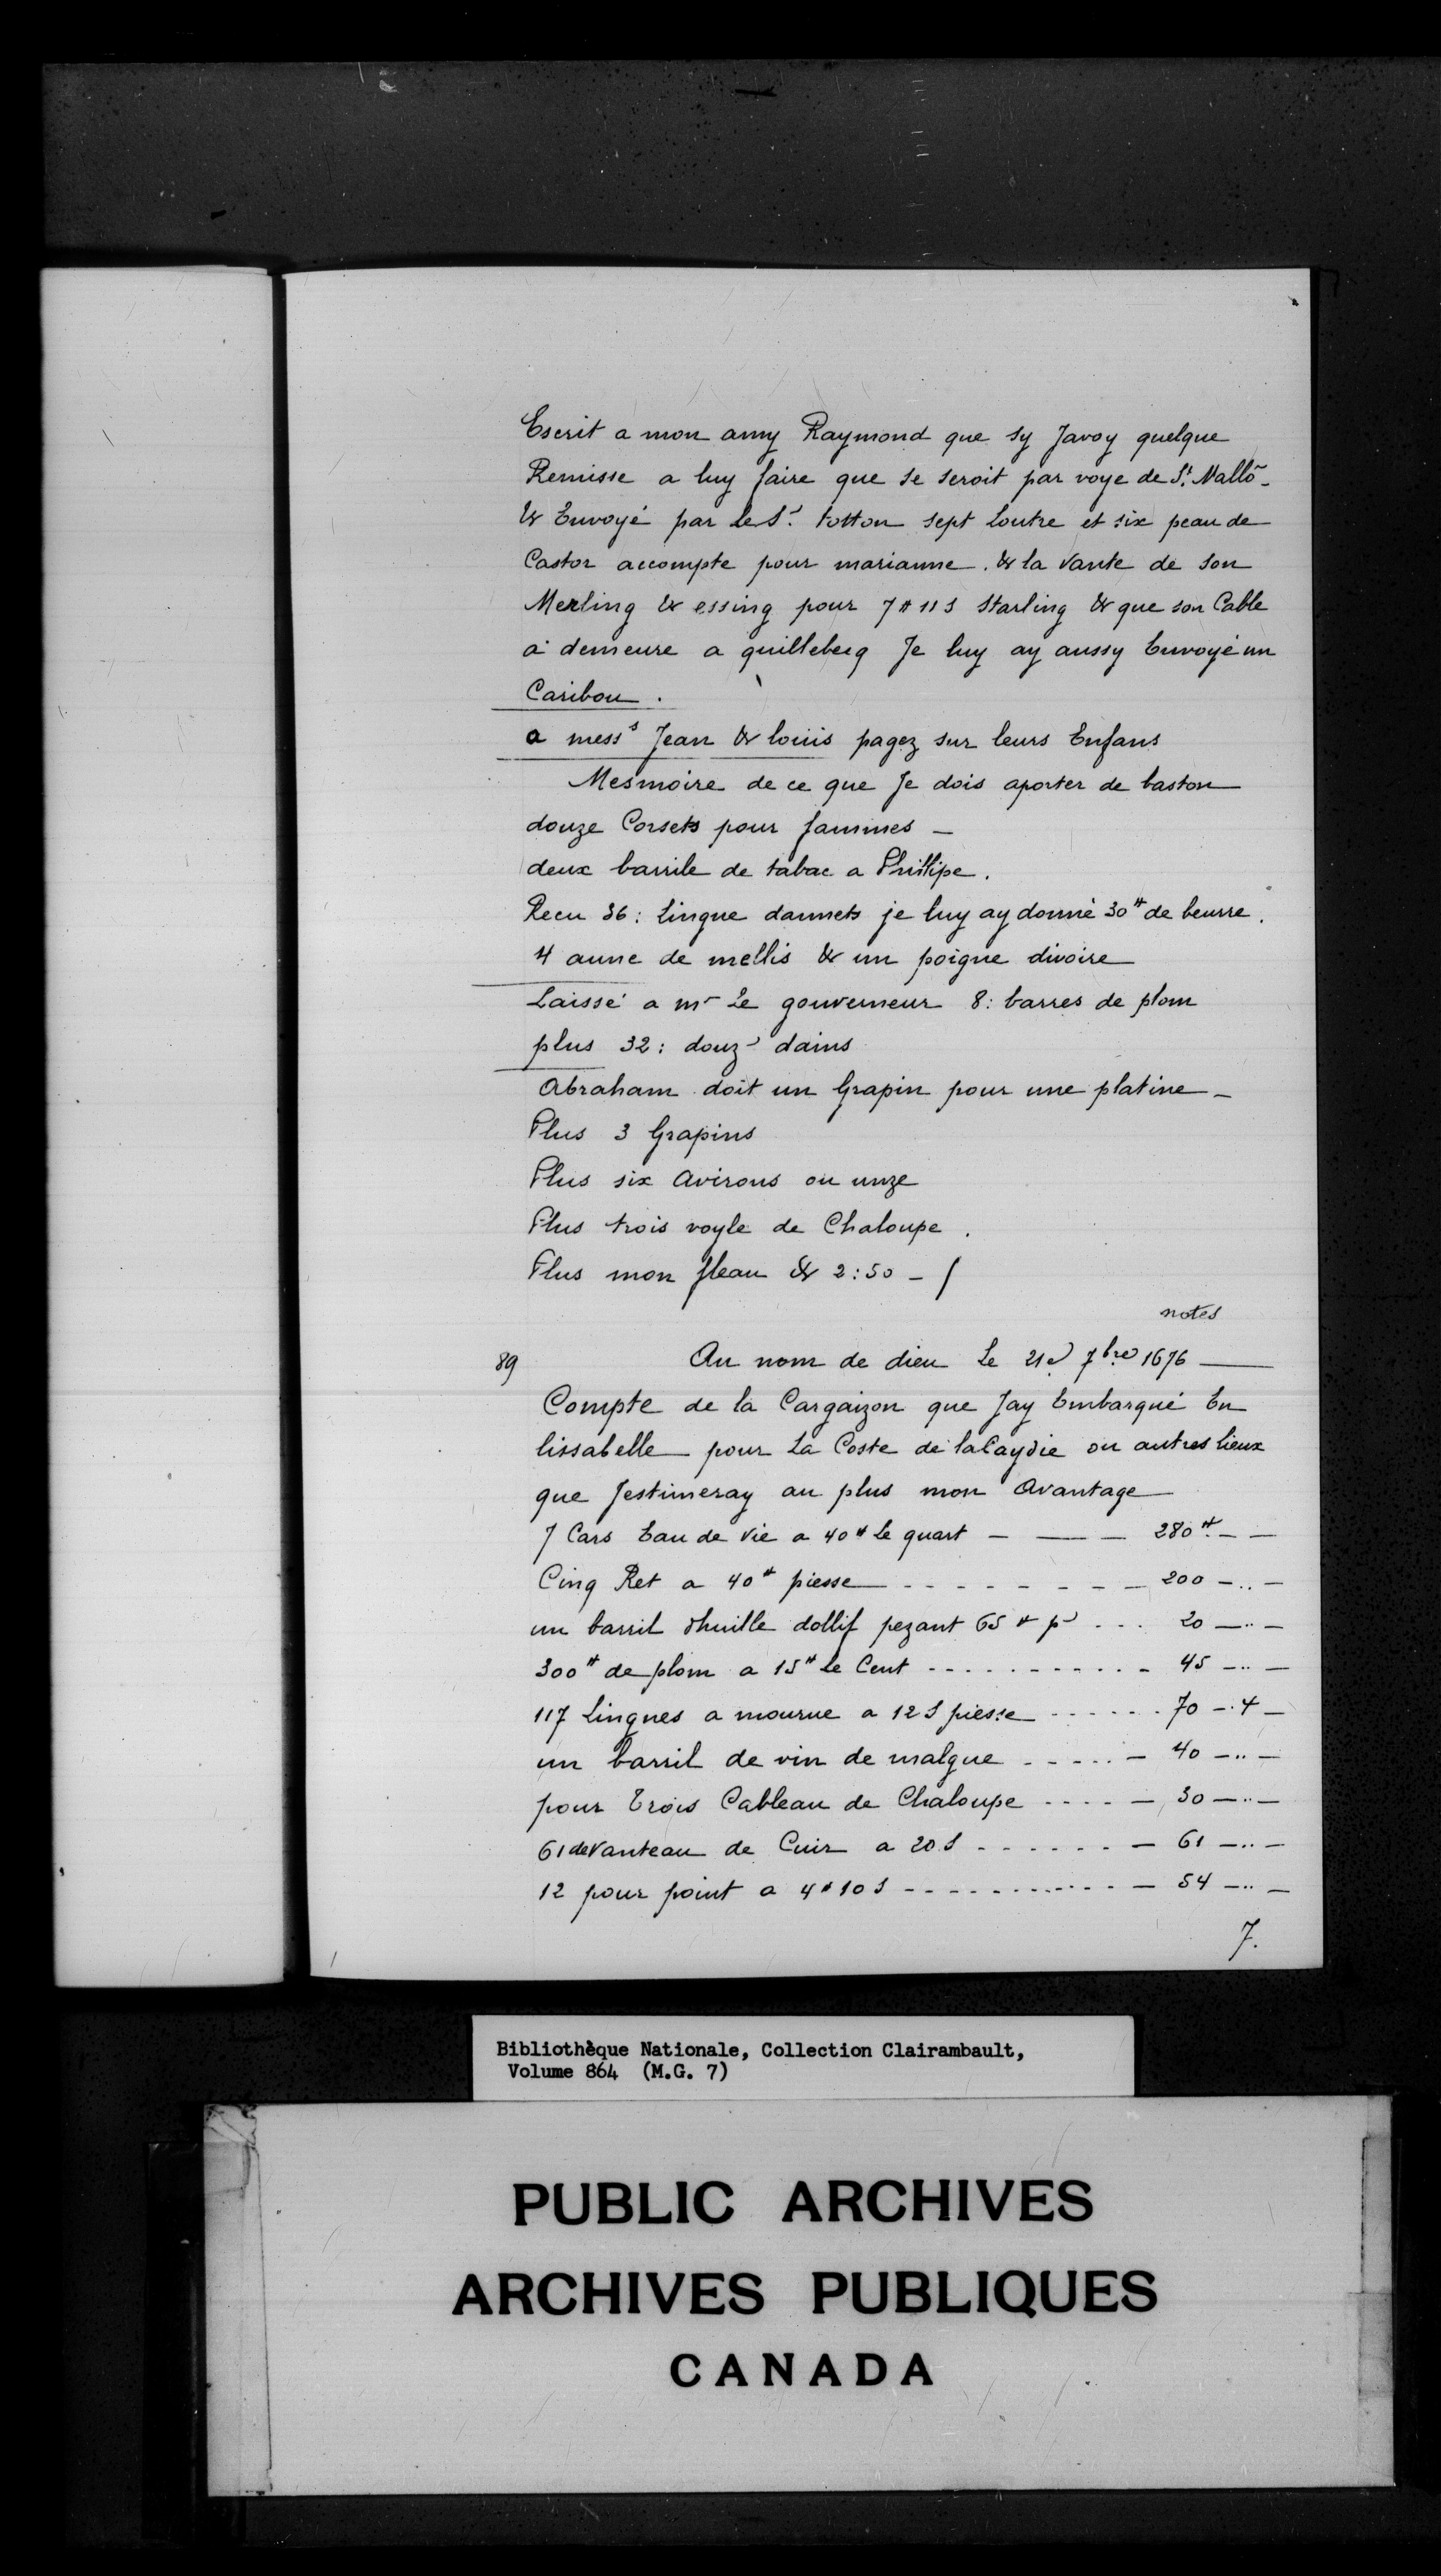 Escrit a mon amy Raymond que sy Javoy quelque
Remisse a luy faire que se seroit par voye de St. Mallo -
& Envoyé par le Sr. totton sept Loutre et six peau de
Castor accompte pour marianne. & la vante de son
Merling & essing pour 7 # 11 s Starling & que son Cable
a demeure a quillebecq Je luy ay aussy Envoyé un
Caribou.
a mess s Jean & louis pagez sur leurs Enfans
Mesmoire de ce que Je dois aporter de baston
douze Corsets pour fammes -
deux barrile de tabac a Phillipe.
Recu 36: Lingue dannets je luy ay donné 30 # de beurre.
4 aune de mellis & un poigne divoire
Laissé a mr Le gouverneur 8: barres de plom
plus 32: douz dains
Abraham doit un Grapin pour une platine -
Plus 3 Grapins
Plus six Avirons ou unze
Plus trois voyle de Chaloupe.
Plus mon fleau & 2:50 - /
notes
89 Au nom de dieu Le 21e 7bre 1676 —
Compte de la Cargaizon que Jay Embarqué En
lissabelle pour La Coste de laCaydie ou autres lieux
que Jestimeray au plus mon Avantage
7 Cars Eau de Vie a 40 # le quart — — — 280 # - -
Cinq Ret a 40 # piesse - - - - - - - 200 - .. -
un barril dhuille dollif pezant 65 # p - - - 20 - .. -
300 # de plom a 15 # le Cent - - - - - - - 45 - .. -
117 Lingues a mourue a 12 s piesse - - - - - 70 - . 4 -
un barril de vin de malgue - - - - - 40 - .. -
pour Trois Cableau de Chaloupe - - - - - 30 - .. -
61 devanteau de Cuir a 20 s - - - - - - - 61 - .. -
12 pour point a 4 # 10 s - - - - - - - - - 54 - .. -
7.
Bibliothèque Nationale, Collection Clairambault,
Volume 864 (M.G. 7)
PUBLIC ARCHIVES
ARCHIVES PUBLIQUES
CANADA